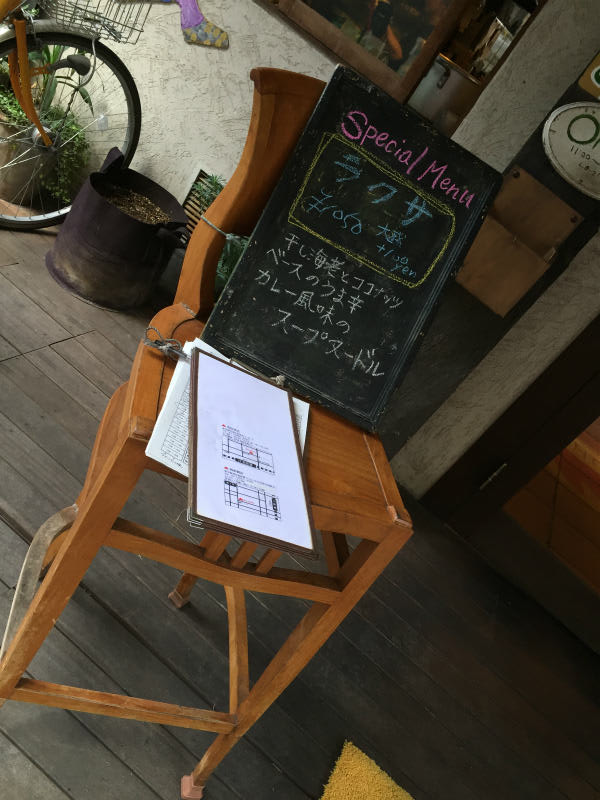 Special Menu
ラクサ
¥1050 大盛
+100yen
干し海老とココナッツ
ベースのうま辛
カレー風味の
スープヌードル
11:00~